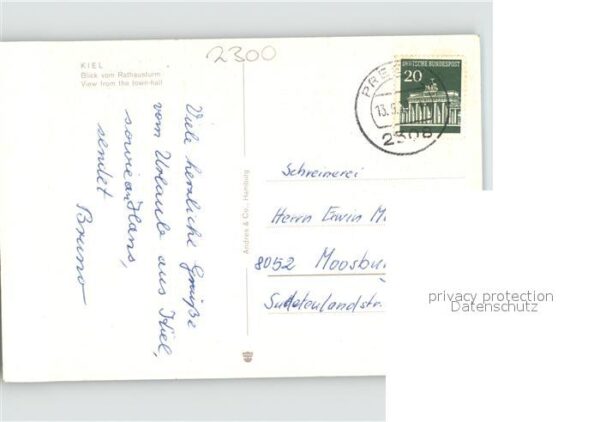 2300
KIEL
Blick vom Rathausturm
View from the town-hall
Viele herzliche Grüße
vom Urlaub aus Kiel,
sowie an Hans,
sendet
Bruno
Andres & Co., Hamburg
DEUTSCHE BUNDESPOST
20
PRE
13.5.
2308
Schreinerei
Herrn Erwin M
8052 Moosbu
Sudetenlandstr.
privacy protection
Datenschutz